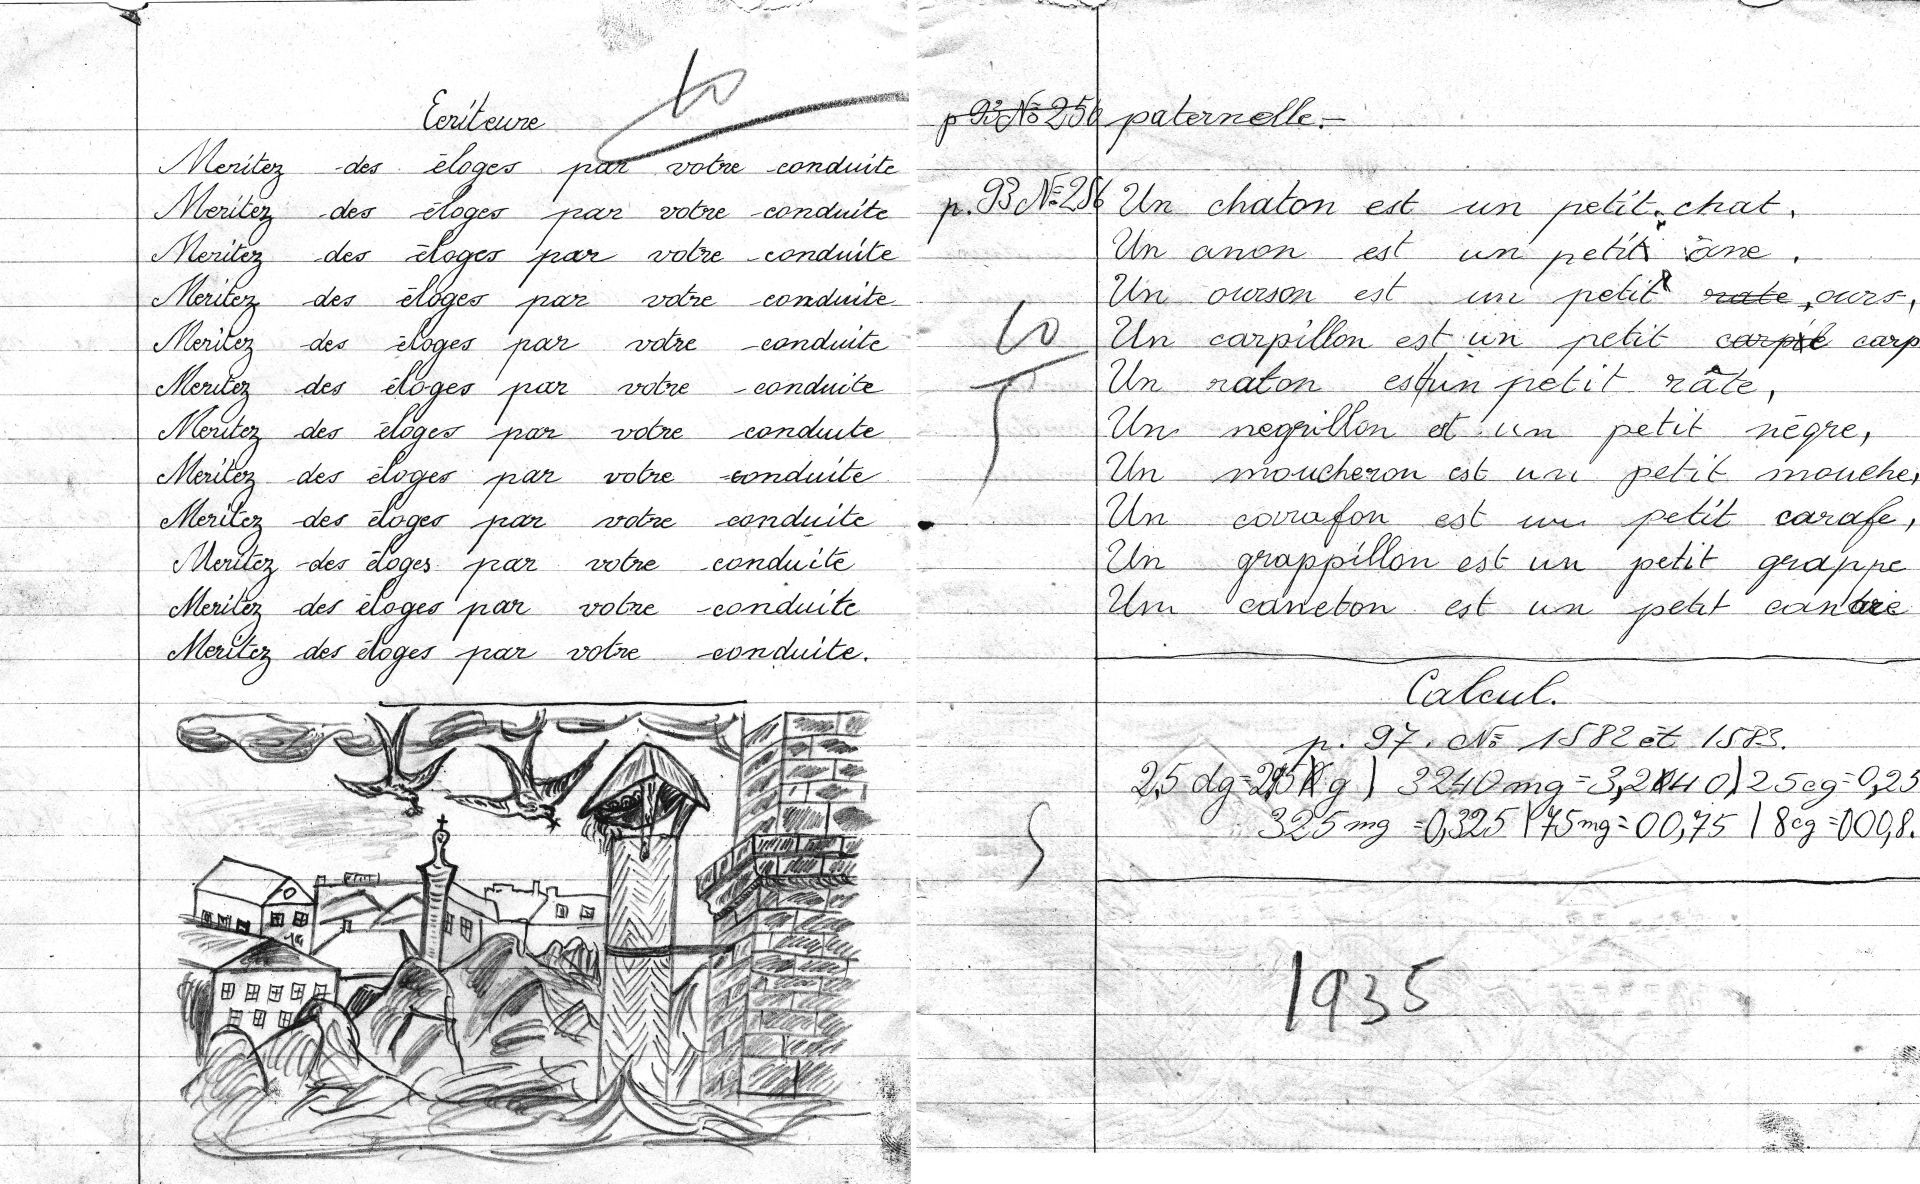 Ecriteure
10
Meritez des éloges par votre conduite
Meritez des éloges par votre conduite
Meritez des éloges par votre conduite
Meritez des éloges par votre conduite
Meritez des éloges par votre conduite
Meritez des éloges par votre conduite
Meritez des éloges par votre conduite
Meritez des éloges par votre conduite
Meritez des éloges par votre conduite
Meritez des éloges par votre conduite
Meritez des éloges par votre conduite
Meritez des éloges par votre conduite.
p 93 № 256 paternelle.-
p. 93 № 256 Un chaton est un petit chat.
Un anon est un petit âne.
Un ourson est un petit rate, ours,
10 Un carpillon est un petit carpil carp
Un raton est un petit râte,
Un negrillon est un petit négre,
Un moucheron est un petit mouche,
Un carafon est un petit carafe,
Un grappillon est un petit grappe
Un caneton est un petit canare
Calcul.
p. 97. № 1582 et 1583.
2,5 dg = g | 3240 mg = | 25 cg = 0,25
325 mg = 0,325 | 75 mg = 00,75 | 8 cg = 000,8.
1935